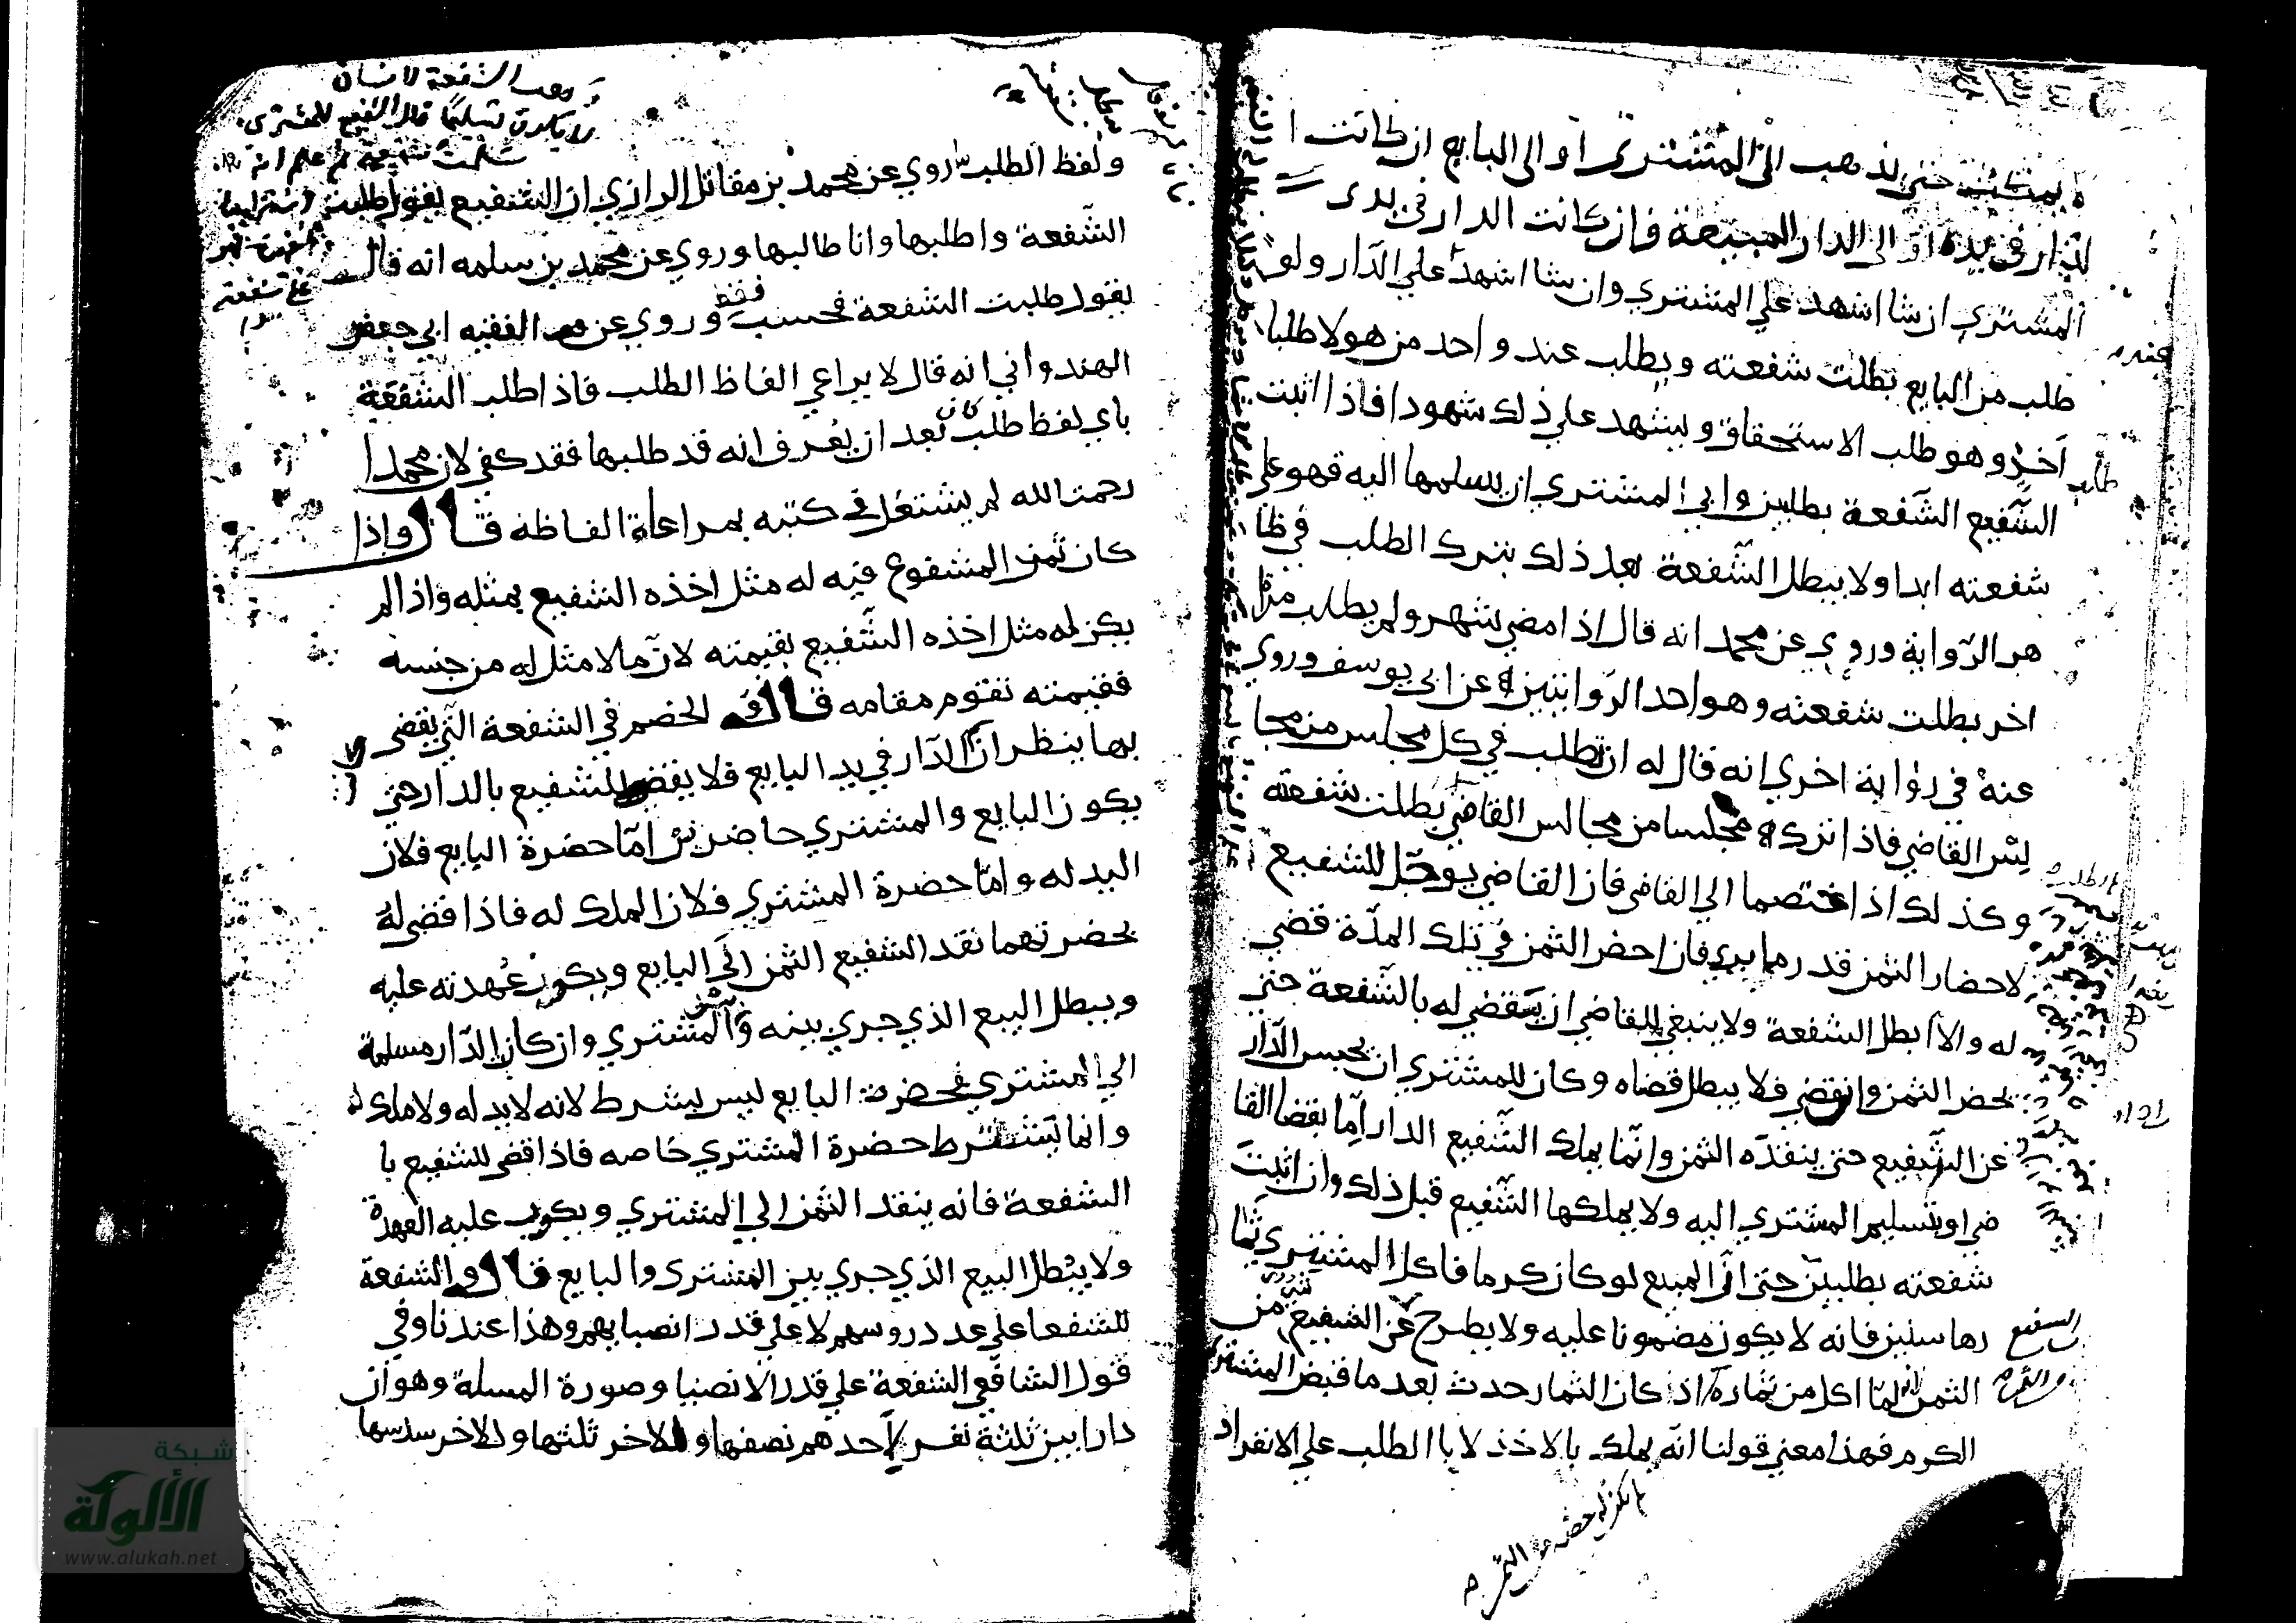 يمكث حتى يذهب الى المشتري او الى البايع ان كانت ا
لدار في يده او الى الدار المبيعة فان كانت الدار في يدى
المشتري ان شا اشهد علي المشتري وان شا اشهد علي الدار ولو
طلب من البايع بطلت شفعته ويطلب عند واحد من هولا طلبا
آخر وهو طلب الاستحقاق ويشهد علي ذلك شهودا فاذا اثبت
الشفيع الشفعة بطلبين وابى المشتري ان يسلمها اليه فهو علي
شفعته ابدا ولا يبطل الشفعة بعد ذلك بترك الطلب في ظا
هر الرواية وروي عن محمد انه قال اذا مضي شهر ولم يطلب مرة
اخر بطلت شفعته وهو احد الروايتين عن ابى يوسف وروي
عنه في رواية اخري انه قال له ان تطلب في كل مجلس من مجا
لس القاضي فاذا ترك مجلسا من مجالس القاضي بطلت شفعته
وكذلك اذا اختصما الي القاضى فان القاضي يوجل للشفيع
لاحضار الثمن قدر ما يرى فان احضر الثمن في تلك المدة قضي
له والا ابطل الشفعة ولا ينبغي للقاضي ان يقضي له بالشفعة حتي
يحضر الثمن وان قضي فلا يبطل قضاه وكان للمشتري ان يحبس الدار
عن الشفيع حتى ينقده الثمن وانما يملك الشفيع الدار اما بقضا القا
ضي او بتسليم المشتري اليه ولا يملكها الشفيع قبل ذلك وان اثبت
شفعته بطلبين حتي ان المبيع لو كان كرما فاكل المشتري ثما
رها سنين فانه لا يكون مضمونا عليه ولا يطرح عن الشفيع من
الثمن لما اكل من ثماره اذا كان الثمار حدث بعد ما قبض المشتري
الكرم فهذا معني قولنا انه يملك بالاخذ لا با الطلب علي الانفراد
عنده
طلب
الشفيع
ولفظ الطلب روي عن محمد بن مقاتل الرازي ان الشفيع يقول طلبت
الشفعة واطلبها وانا طالبها وروي عن محمد بن سلمه انه قال
يقول طلبت الشفعة فحسب فقط وروي عن الفقيه ابي جعفر
الهندواني انه قال لا يراعي الفاظ الطلب فاذا طلب الشفعة
باي لفظ طلب كان بعد ان يعرف انه قد طلبها فقد كفي لان محمدا
رحمت الله لم يشتغل في كتبه بمراعاة الفاظه قال واذا
كان ثمن المشفوع فيه له مثل اخذه الشفيع بمثله واذا لم
يكن له مثل اخذه الشفيع بقيمته لان ما لا مثل له من جنسه
فقيمته تقوم مقامه قال الخصم في الشفعة التي يقضى
بها ينظر ان الدار في يد البايع فلا يقضي للشفيع بالدار حتي
يكون البايع والمشتري حاضرين اما حضرة البايع فلان
اليد له واما حضرة المشتري فلان الملك له فاذا قضي له
بحضرتهما نقد الشفيع الثمن الى البايع ويكون عهدته عليه
ويبطل البيع الذي جري بينه و المشتري وان كان الدار مسلمة
الي المشتري فحضرة البايع ليس بشرط لانه لا يد له ولا ملك له
وانما يشترط حضرة المشتري خاصه فاذا قضى للشفيع با
الشفعة فانه ينقد الثمن الي المشتري ويكون عليه العهدة
ولا يبطل البيع الذي جري بين المشتري والبايع قال والشفعة
للشفعا علي عدد روسهم لا علي قدر انصبايهم وهذا عندنا وفي
قول الشافعي الشفعة علي قدر الانصبا وصورة المسلة وهو ان
دارا بين ثلثة نفر لاحدهم نصفها و للاخر ثلثها وللاخر سدسها
لا يكون تسليما قال الشفيع للمشتري
شبكة
الألوكة
www.alukah.net